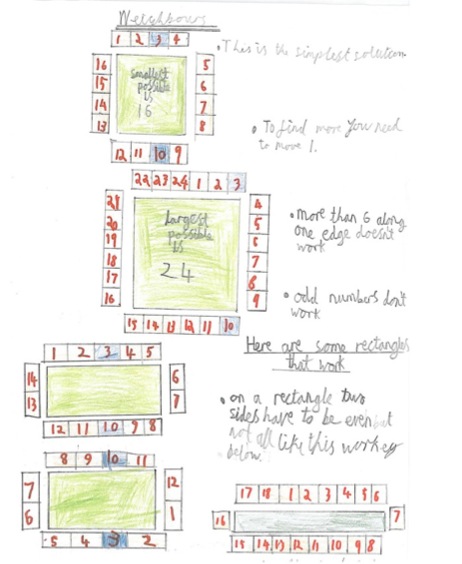 Neighbours
1 2 3 4
• This is the simplest solution
16 5
15 6
14 7
13 8
smallest
possible
is
16
12 11 10 9
• To find more you need
to move 1.
22 23 24 1 2 3
21 4
20 5
19 6
18 7
17 8
16 9
largest
possible
is
24
15 14 13 12 11 10
• more than 6 along
one edge doesn't
work
• odd numbers don't
work
Here are some rectangles
that work
1 2 3 4 5
14 6
13 7
12 11 10 9 8
• on a rectangle two
sides have to be even but
not all like this worked
below.
8 9 10 11
7 12
6 1
5 4 3 2
17 18 1 2 3 4 5 6
16 7
15 14 13 12 11 10 9 8